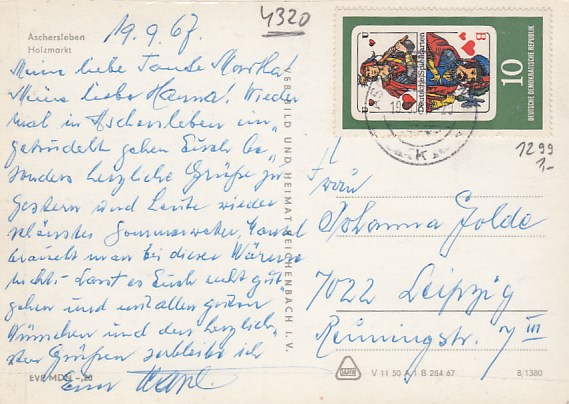 Aschersleben
Holzmarkt
19. 9. 67.
4320
Meine liebe Tante Martha!
Mein liebes Hanna! Wieder
mal in Aschersleben ein-
getrudelt gehen Euch be-
sonders herzliche Grüße zu
Gestern und heute wieder
schönstes Sommerwetter, Mantel
braucht man bei dieser Wärme
nicht. Lasst es Euch recht gut
gehen und mit allen guten
Wünschen und den herzlich-
sten Grüßen verbleibe ich
Euer Karl.
EVP MDN -,20
VEB BILD UND HEIMAT REICHENBACH I. V.
10
DEUTSCHE DEMOKRATISCHE REPUBLIK
Deutsche Spielkarten
B
1299
1,-
Frau
Johanna Golde
7022 Leipzig
Renningstr. 7 III
V 11 50 A 1 B 284 67
8/1380